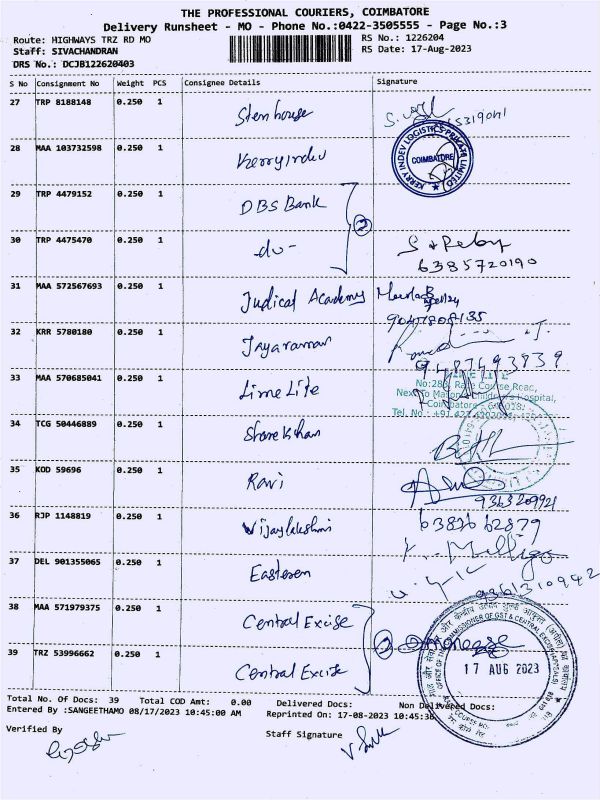 THE PROFESSIONAL COURIERS, COIMBATORE
Delivery Runsheet - MO - Phone No.:0422-3505555 - Page No.:3
Route: HIGHWAYS TRZ RD MO RS No.: 1226204
Staff: SIVACHANDRAN RS Date: 17-Aug-2023
DRS No.: DCJB122620403
S No Consignment No Weight PCS Consignee Details Signature
27 TRP 8188148 0.250 1 Stenhouse
28 MAA 103732598 0.250 1 Kerryindev
KERRY INDEV LOGISTICS PRIVATE LIMITED
COIMBATORE
29 TRP 4479152 0.250 1 DBS Bank
2
30 TRP 4475470 0.250 1 -do-
6385720190
31 MAA 572567693 0.250 1 Judical Academy
9047808135
32 KRR 5780180 0.250 1 Jayaraman
9487493839
33 MAA 570685041 0.250 1 Lime Lite
No:28 Race Course Road,
Coimbatore
34 TCG 50446889 0.250 1 Sharekhan
35 KOD 59696 0.250 1 Ravi
9363209921
36 RJP 1148819 0.250 1 Vijaylakshmi
6382662879
37 DEL 901355065 0.250 1 Eastern
9361310992
38 MAA 571979375 0.250 1 Central Excise
2
39 TRZ 53996662 0.250 1 Central Excise
17 AUG 2023
Total No. Of Docs: 39 Total COD Amt: 0.00 Delivered Docs: Non Delivered Docs:
Entered By :SANGEETHAMO 08/17/2023 10:45:00 AM Reprinted On : 17-08-2023 10:45:36
Verified By Staff Signature